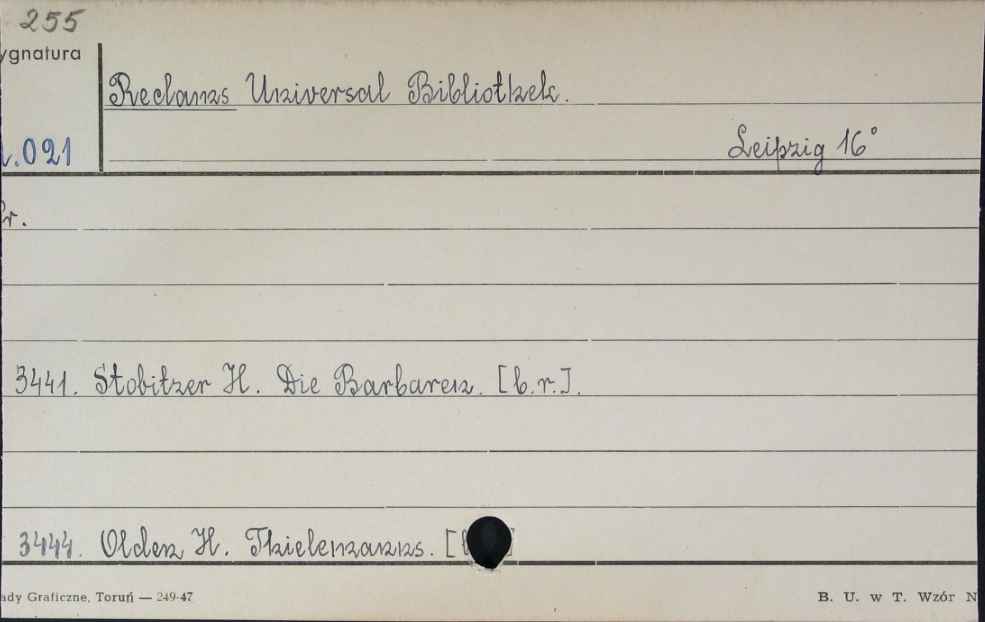 255
ygnatura
Reclams Universal Bibliothek.
.021
Leipzig 16°
r.
3441. Stobitzer H. Die Barbaren. [b.r.].
3444. Olden H. Thielemanns. [
ady Graficzne, Toruń — 249-47
B. U. w T. Wzór N